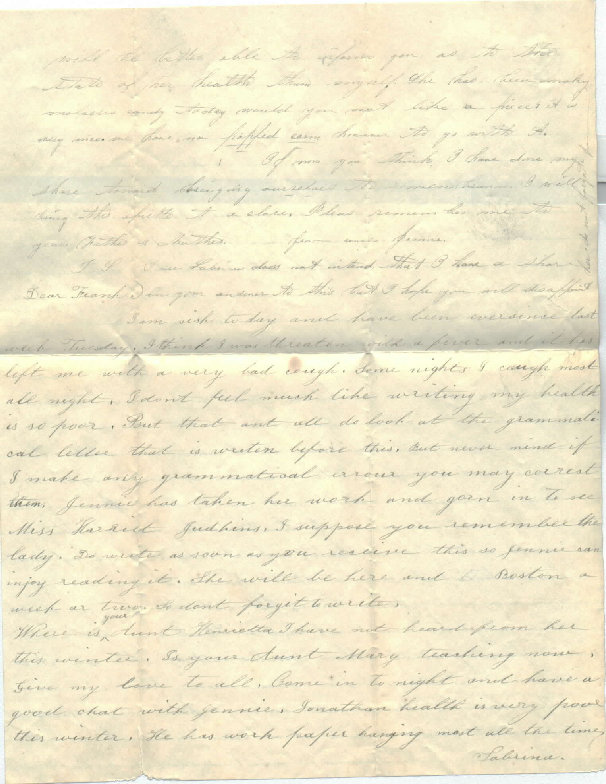 will be better able to inform you as to the
state of her health than myself. She has been making
molasses candy today would you not like a piece it is
very nice. we have no popped corn however to go with it.
If now you think I have done my
share toward bringing ourselves to remembrance I will
bring this epistle to a close. Please remember me to
your Father & Mother. from your
P.S. I see Sabrina does not intend that I have a share
Dear Frank) in your answer to this but I hope you will disappoint
I am sick to day and have been ever since last
week Tuesday. I think I was threaton with a fever and it has
left me with a very bad cough. Some nights I cough most
all night. I dont feel much like writing my health
is so poor. But that ant all do look at the grammati
cal letter that is writen before this. But never mind if
I make any grammatical errour you may correst
them. Jennie has taken her work and gorn in to see
Miss Harriet Judkins. I suppose you remember the
lady. Do write as soon as you receive this so Jennie can
injoy reading it. She will be here and Boston a
week or two. So dont forget to write.
Where is your Aunt Henrietta I have not heard from her
this winter. Is your Aunt Mary teaching now.
Give my love to all. Come in to night and have a
good chat with Jennie. Jonathan health is very poor
this winter. He has work paper hanging most all the time
Sabrina.